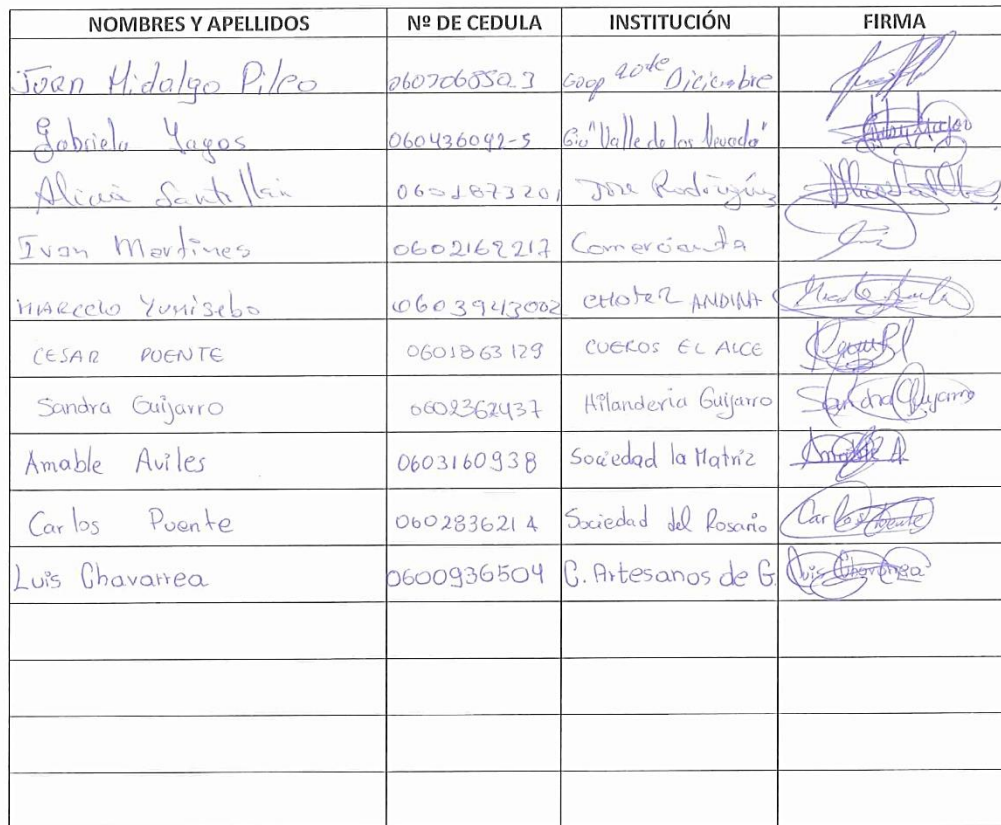 NOMBRES Y APELLIDOS Nº DE CEDULA INSTITUCIÓN FIRMA
Juan Hidalgo Pilco Coop 20 de Diciembre
Gabriela Yagos 060436092-5 "Valle de los Nevados"
Alicia Santillán 0601873201 Jose
Ivan Martines 0602162217 Comercianta
MARCELO 0603943002 HOTEL ANDINA
CESAR PUENTE 0601863129 CUEROS EL ALCE
Sandra Guijarro 0602362437 Hilanderia Guijarro Sandra Guijarro
Amable Aviles 0603160938 Sociedad la Matriz Amable A
Carlos Puente 0602836214 Sociedad del Rosario Carlos Puente
Luis Chavarrea 0600936504 C. Artesanos de G. Luis Chavarrea